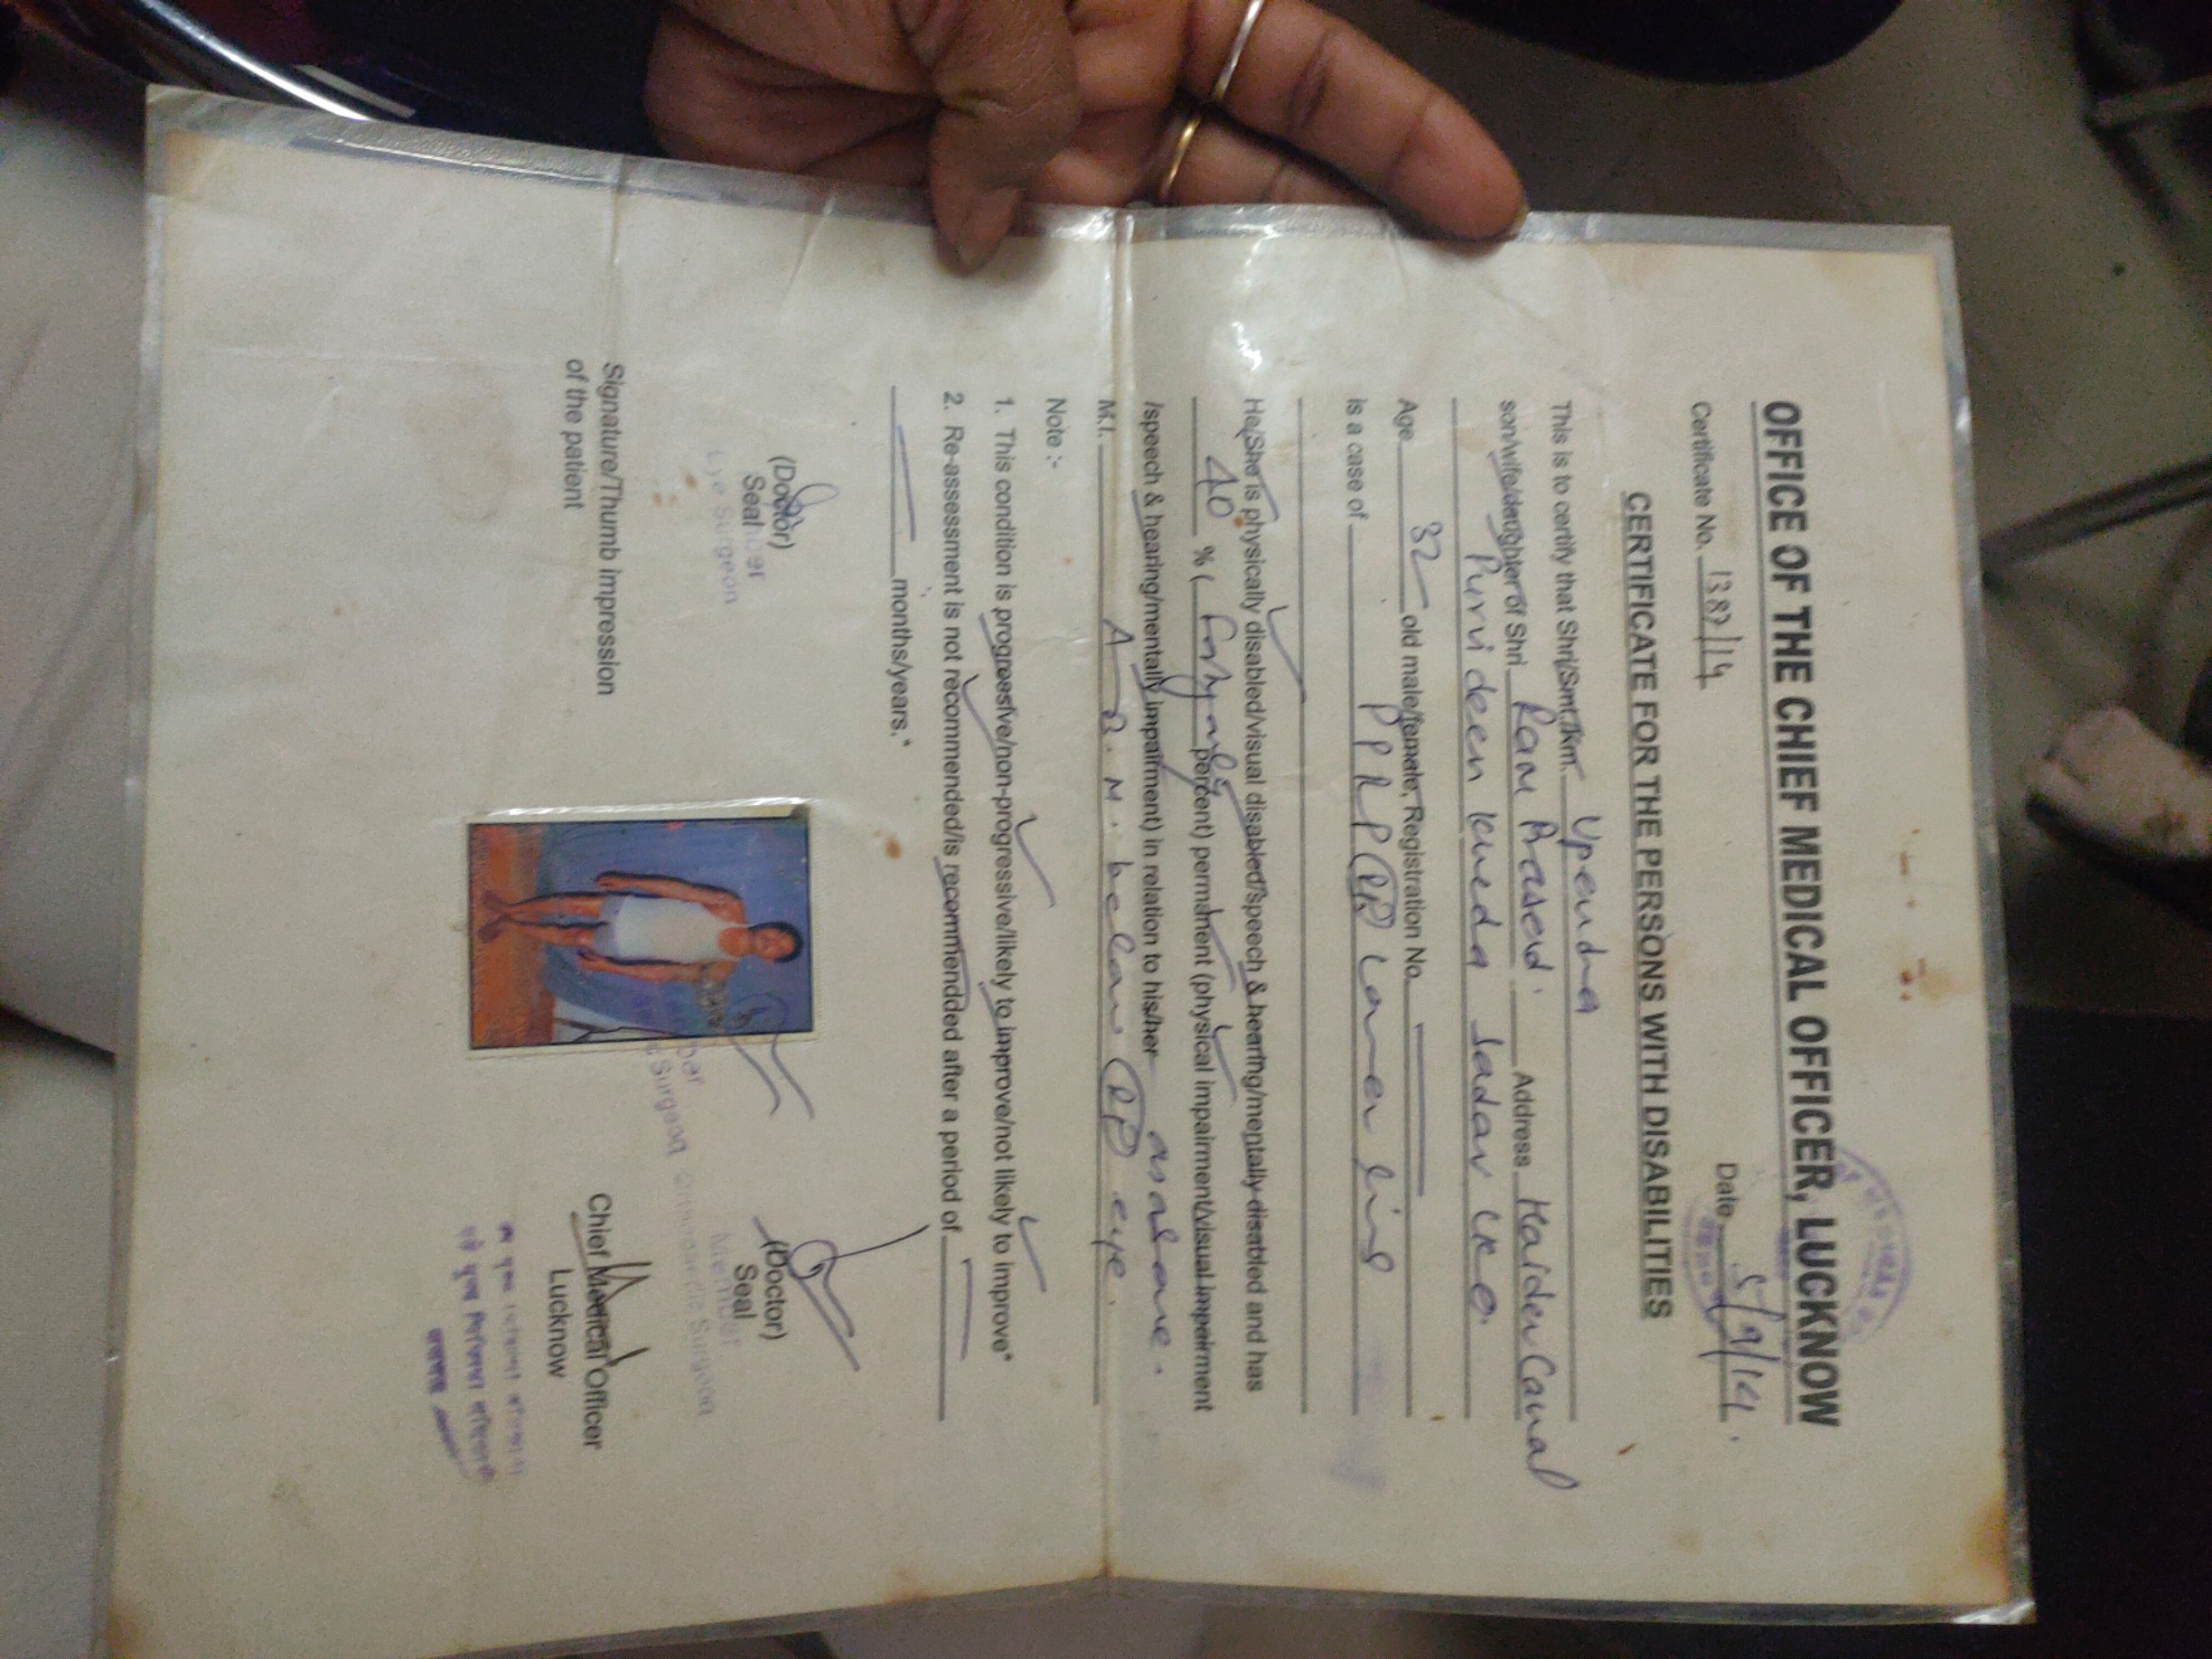 OFFICE OF THE CHIEF MEDICAL OFFICER, LUCKNOW
Certificate No. 1387/14 Date 5/9/14.
CERTIFICATE FOR THE PERSONS WITH DISABILITIES
This is to certify that Shri/Smt./km. Upendra
son/wife/daughter of Shri Ram Prasad. Address Haider Canal
Purvi deen kheda Sadar LKO.
Age 32 old male/female, Registration No.
is a case of PPRP (R) Lower Limb
He/She is physically disabled/visual disabled/speech & hearing/mentally disabled and has
40 % ( percent) permanent (physical impairment/visual impairment
/speech & hearing/mentally impairment) in relation to his/her as above.
M.I. A R. M. below (R) eye.
Note :-
1. This condition is progressive/non-progressive/likely to improve/not likely to improve*
2. Re-assessment is not recommended/is recommended after a period of
months/years.*
(Doctor) (Doctor)
Seal Seal
Eye Surgeon Surgeon Orthopaedic Surgeon
Member
Signature/Thumb impression
of the patient
Chief Medical Officer
Lucknow